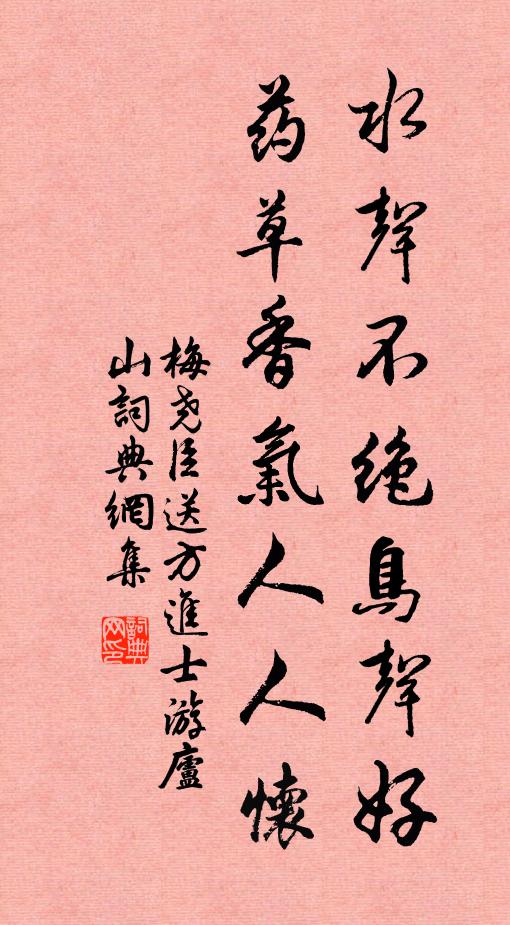 水聲不絶鳥聲好
药草香氣人人懷
梅尧臣送方進士游廬
山詞典網集
詞典网印